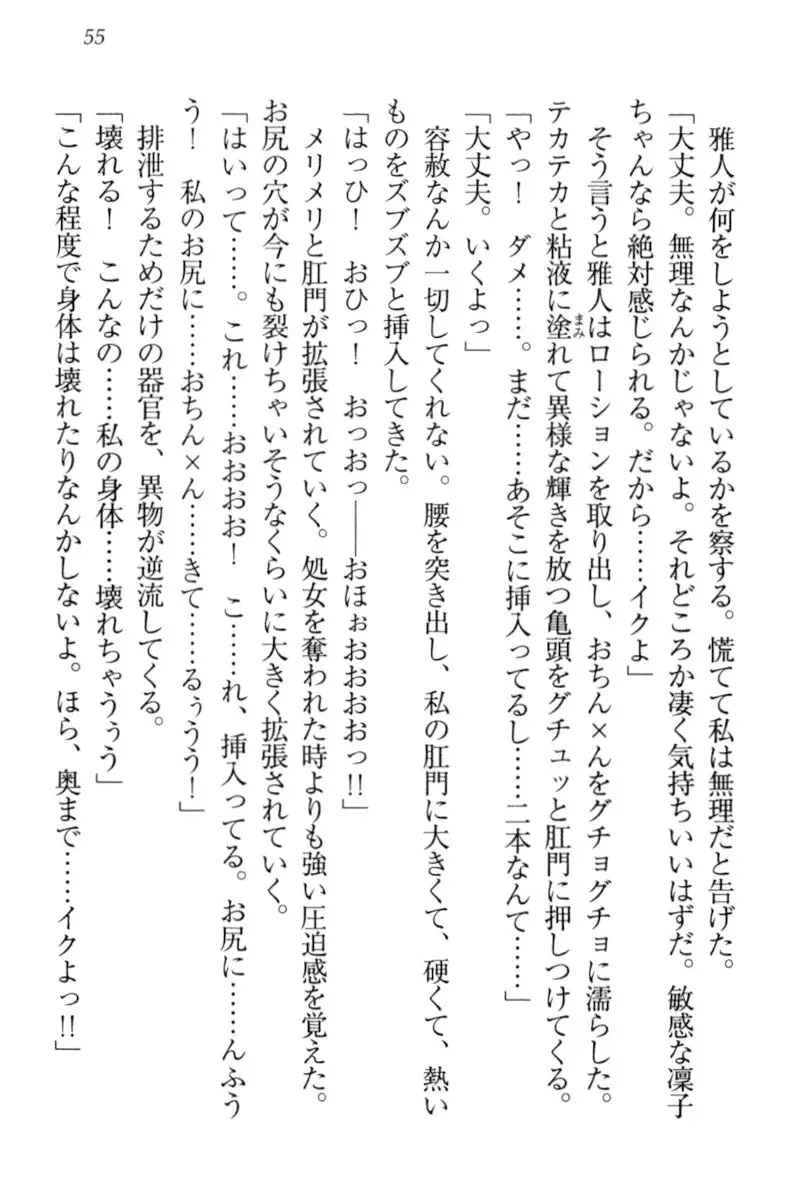 55
雅人が何をしようとしているかを察する。慌てて私は無理だと告げた。
「大丈夫。無理なんかじゃないよ。それどころか凄く気持ちいいはずだ。敏感な凜子
ちゃんなら絶対感じられる。だから……イクよ」
そう言うと雅人はローションを取り出し、おちん×んをグチョグチョに濡らした。
テカテカと粘液に塗れて異様な輝きを放つ亀頭をグチュッと肛門に押しつけてくる。
「やっ！　ダメ……。まだ……あそこに挿入ってるし……二本なんて……」
「大丈夫。いくよっ」
容赦なんか一切してくれない。腰を突き出し、私の肛門に大きくて、硬くて、熱い
ものをズブズブと挿入してきた。
「はっひ！　おひっ！　おっおっ――おほぉおおおおっ!!」
メリメリと肛門が拡張されていく。処女を奪われた時よりも強い圧迫感を覚えた。
お尻の穴が今にも裂けちゃいそうなくらいに大きく拡張されていく。
「はいって……。これ……おおおお！　こ……れ、挿入ってる。お尻に……んふう
う！　私のお尻に……おちん×ん……きて……るぅうう！」
排泄するためだけの器官を、異物が逆流してくる。
「壊れる！　こんなの……私の身体……壊れちゃうぅう」
「こんな程度で身体は壊れたりなんかしないよ。ほら、奥まで……イクよっ!!」